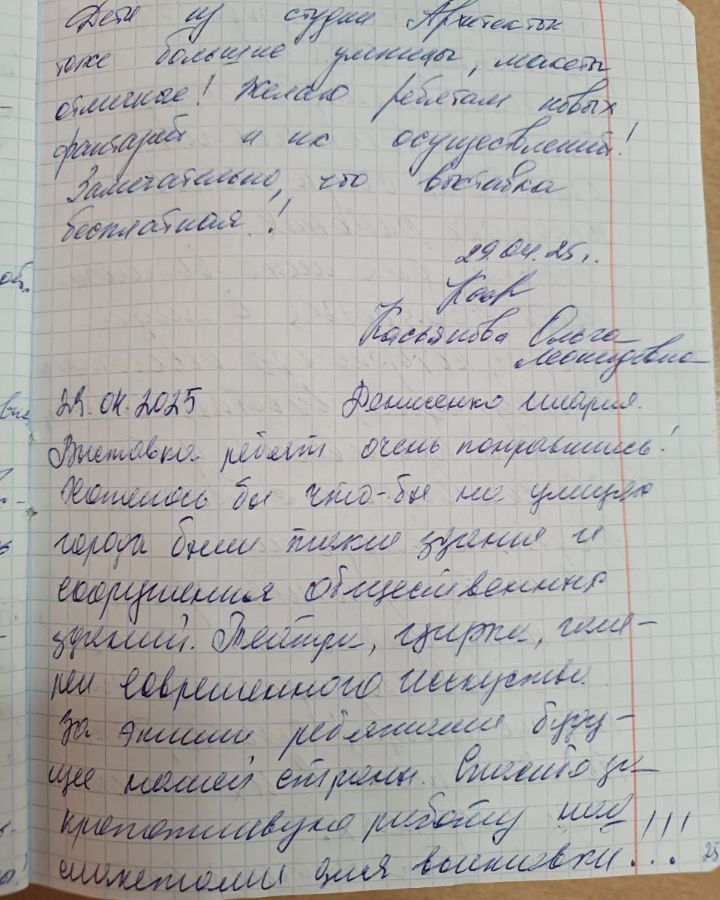 Дети из студии Архитектон
тоже большие умницы, макеты
отличные! Желаю ребятам новых
фантазий и их осуществлений!
Замечательно, что выставка
бесплатная!
29.04.25г.
Касьянова Ольга
Леонидовна
29.04.2025 Денисенко Мария.
Выставка ребят очень понравилась!
Хотелось бы что-бы на улицах
города были такие здания и
сооружения общественных
зданий. Театри, цирки, гале-
реи современного искусства.
За этими ребятами буду-
щее нашей страны. Спасибо за
кропотливую работу над
макетами для выставки!!!
25